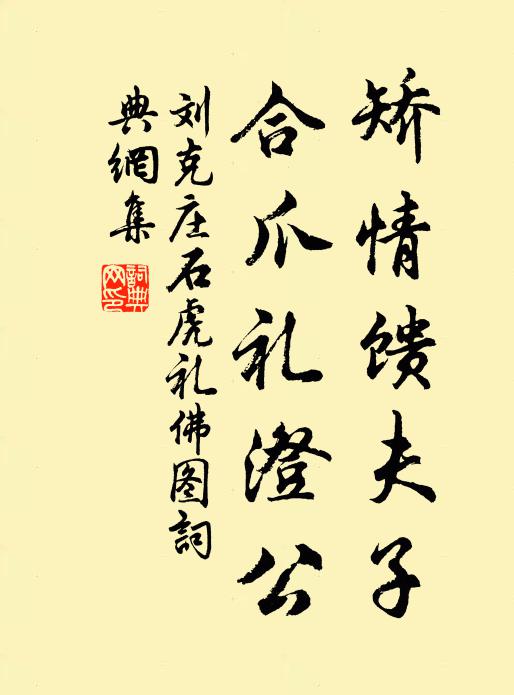 矫情馈夫子
合爪礼澄公
刘克庄石虎礼佛图詞
典網集
詞典
网印